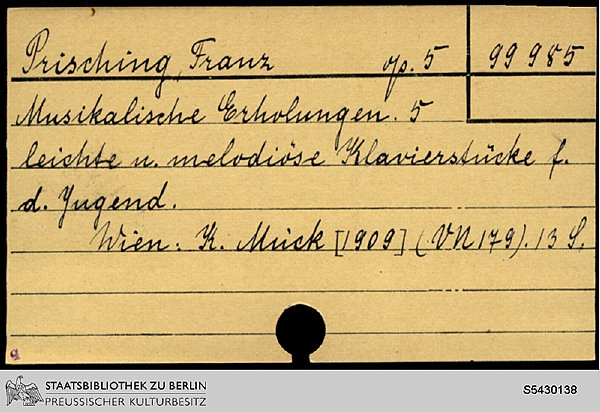 Prisching, Franz op. 5 99 985
Musikalische Erholungen. 5
leichte u. melodiöse Klavierstücke f.
d. Jugend.
Wien: K. Mück [1909] (VN 179). 13 S.
q
STAATSBIBLIOTHEK ZU BERLIN
PREUSSISCHER KULTURBESITZ
S5430138